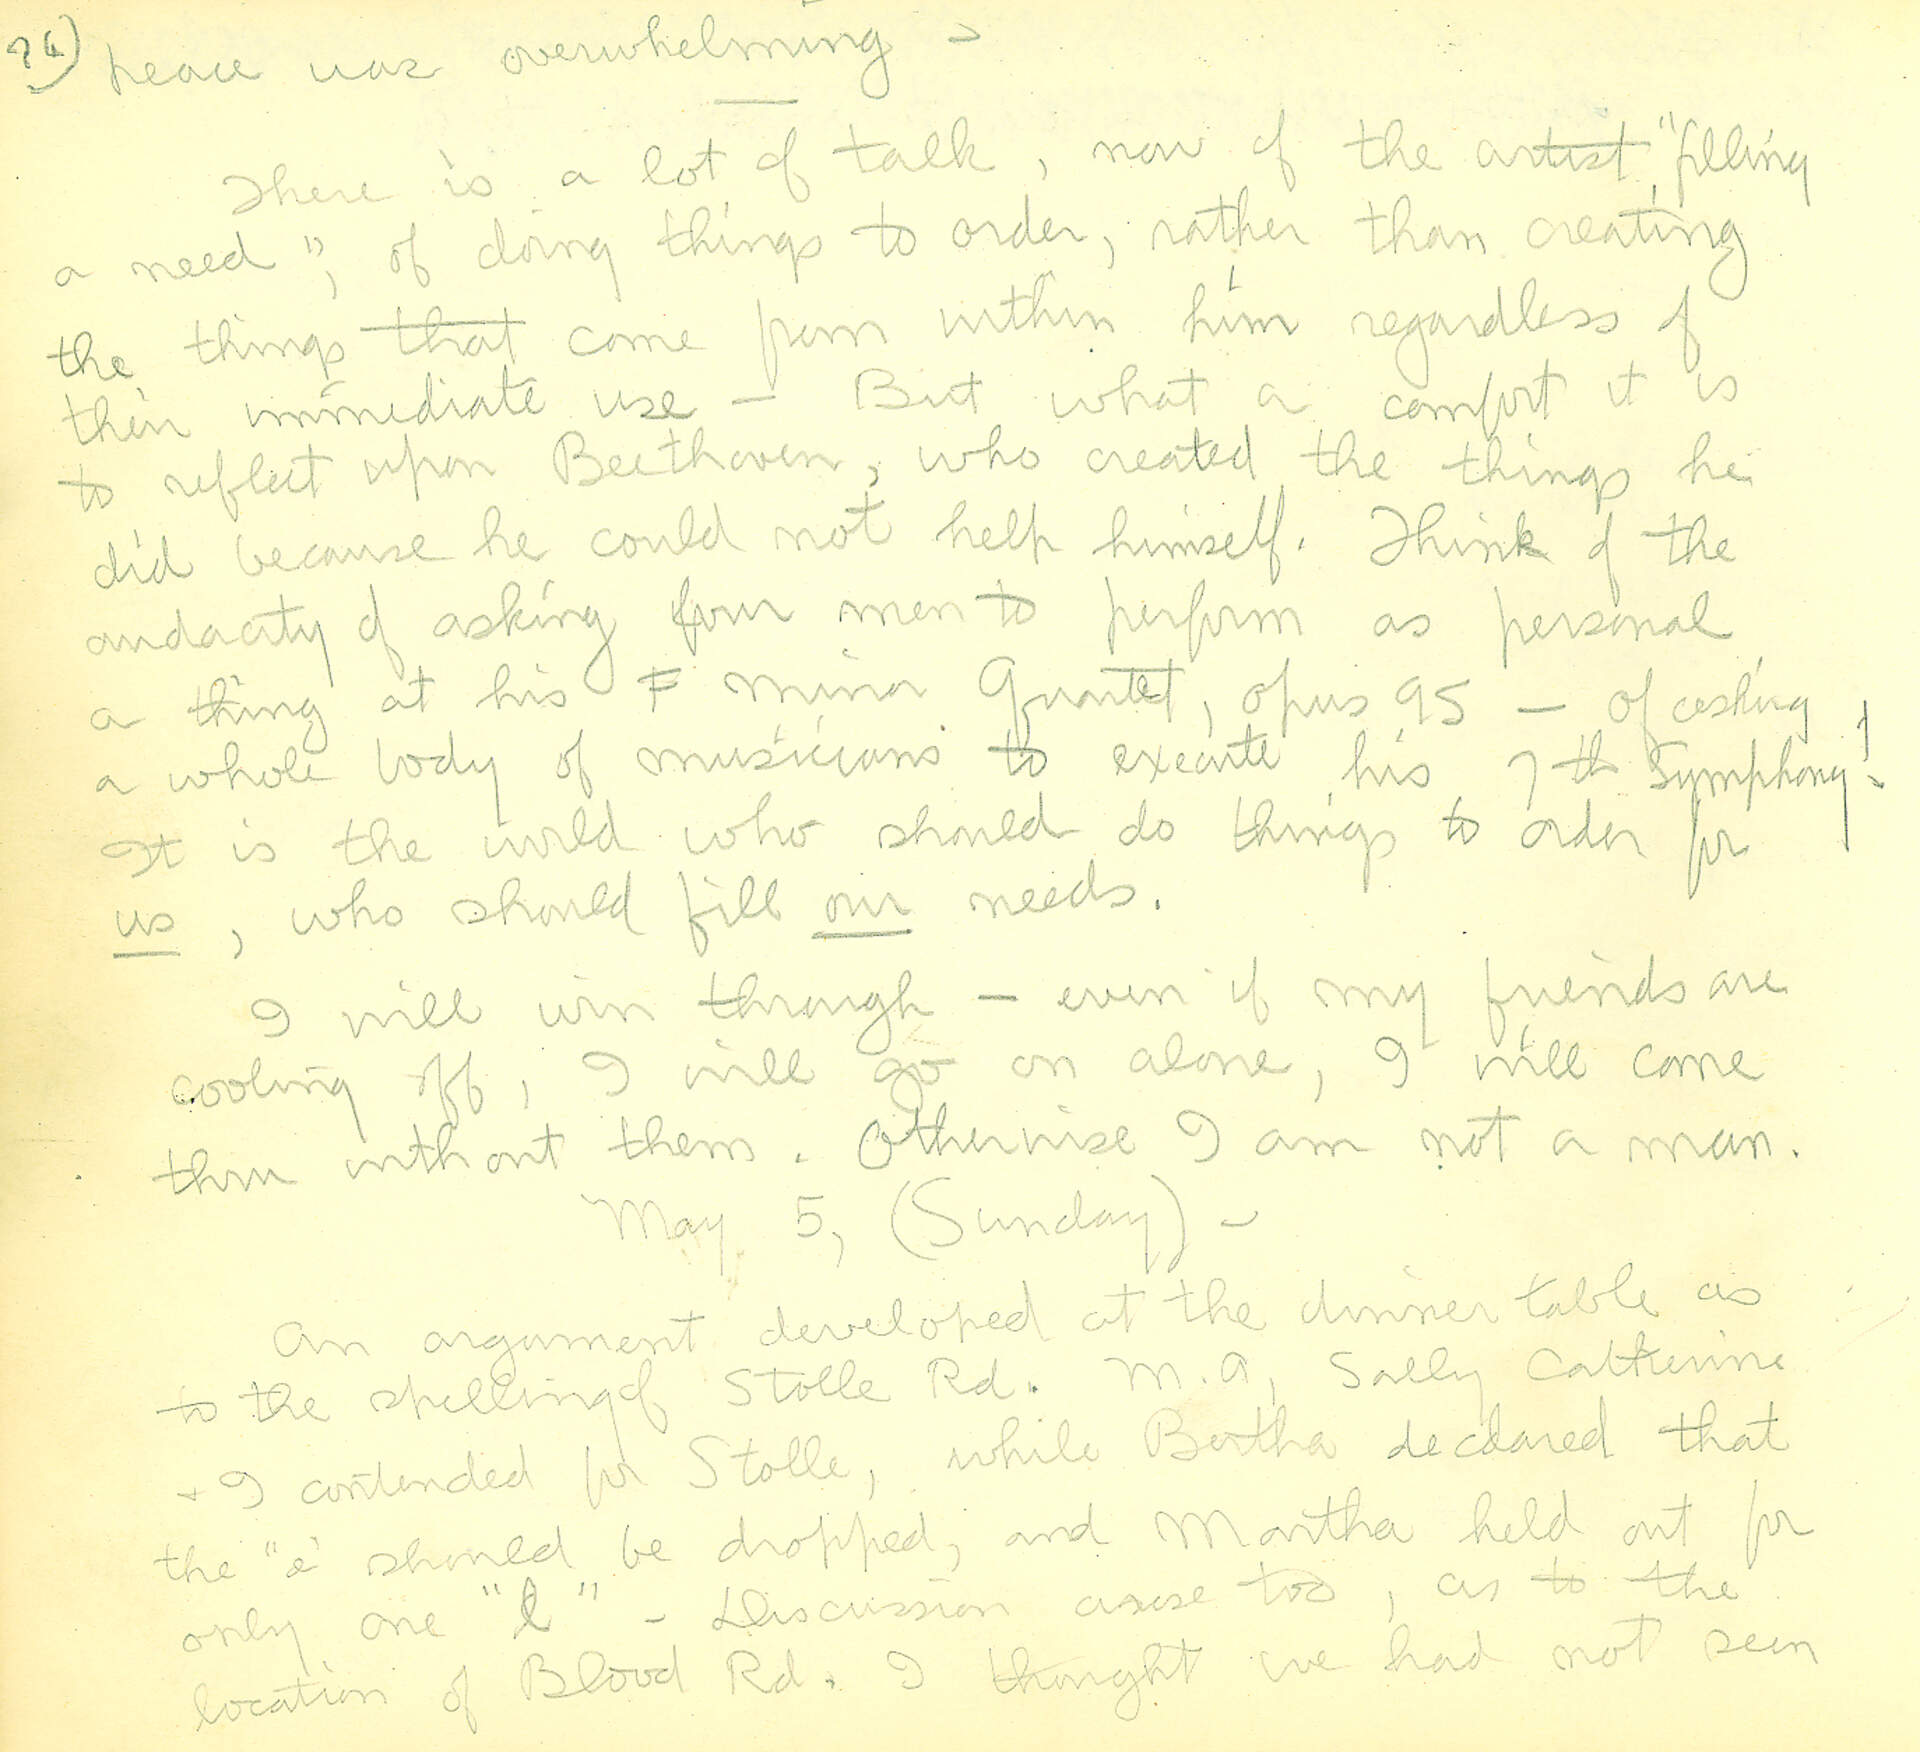 76) peace was overwhelming -
There is a lot of talk, now of the artist "filling
a need", of doing things to order, rather than creating
the things that come from within him regardless of
their immediate use - But what a comfort it is
to reflect upon Beethoven, who created the things he
did because he could not help himself. Think of the
audacity of asking four men to perform as personal
a thing at his F minor Quartet, opus 95 - of asking
a whole body of musicians to execute his 7th Symphony!
It is the world who should do things to order for
us, who should fill our needs.
I will win through - even if my friends are
cooling off, I will go on alone, I will come
thru without them. Otherwise I am not a man.
May 5, (Sunday) -
An argument developed at the dinner table as
to the spelling of Stolle Rd. M.A, Sally Catherine
+ I contended for Stolle, while Bertha declared that
the "e" should be dropped, and Martha held out for
only one "l" - Discussion arose too, as to the
location of Blood Rd. I thought we had not seen